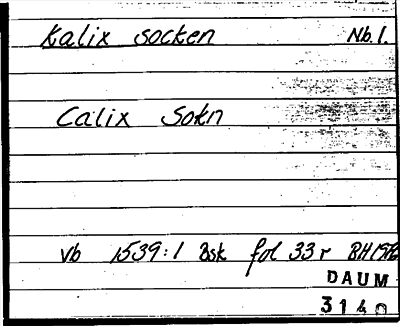 Kalix socken Nb. 1.
Calix Sokn
vb 1539:1 Bsk fol 33 r
DAUM
3140